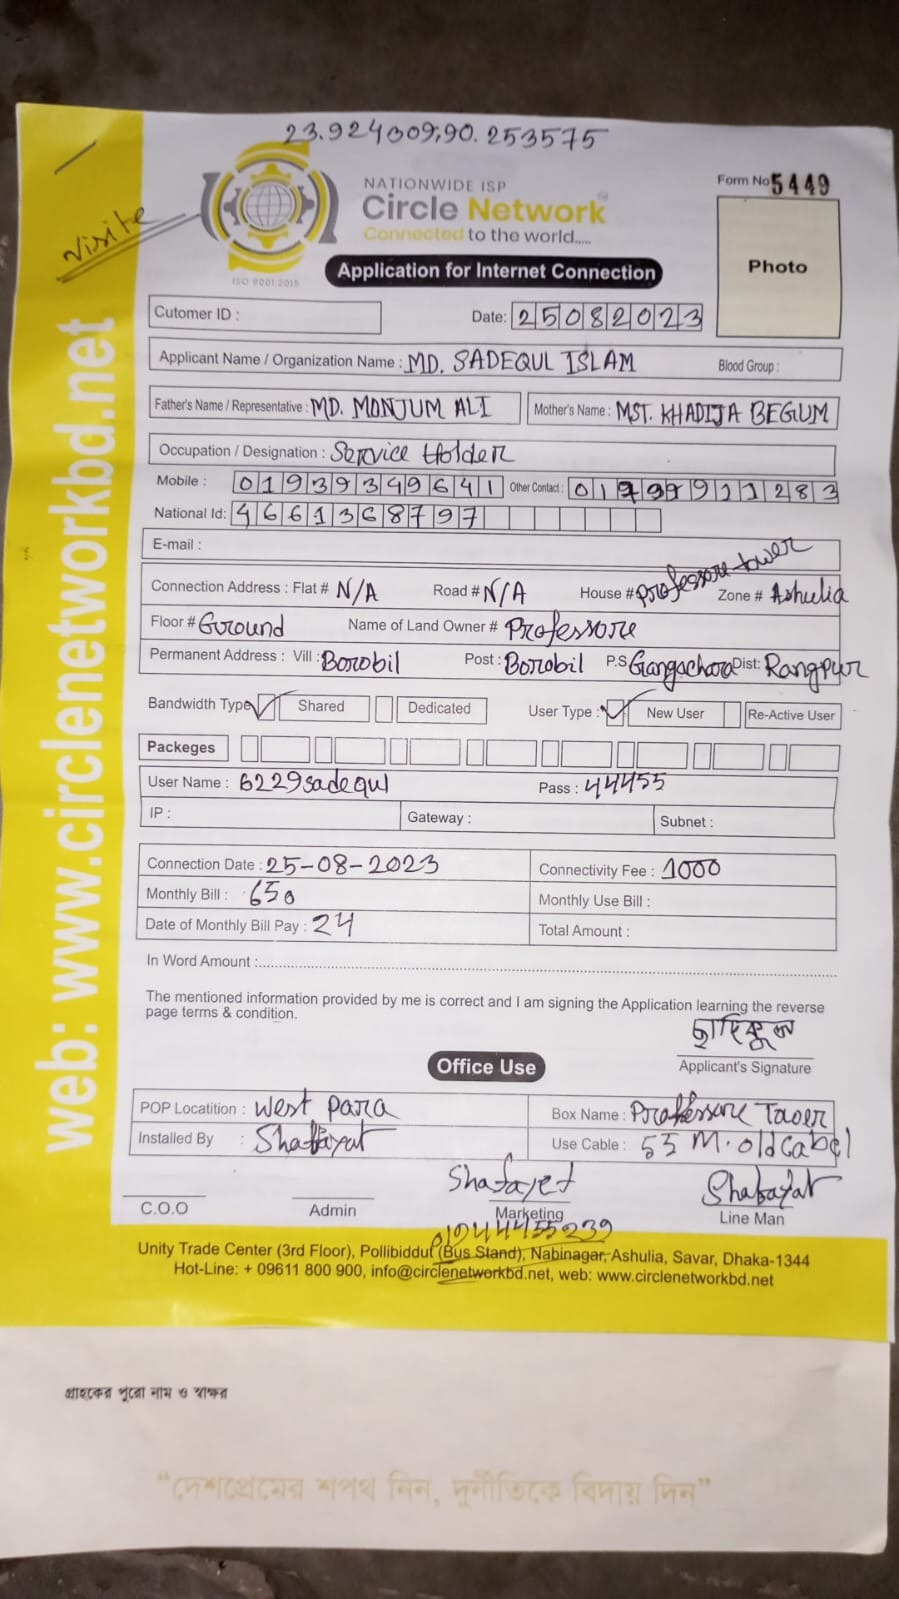 23.924009,90.253575
Visite
NATIONWIDE ISP
Circle Network
Connected to the world.....
ISO 9001:2015
Form No 5449
Photo
Application for Internet Connection
Cutomer ID :
Date: 25082023
Applicant Name / Organization Name : MD. SADEQUL ISLAM Blood Group :
Father's Name / Representative : MD. MONJUM ALI Mother's Name : MST. KHADIJA BEGUM
Occupation / Designation : Service Holder
Mobile : 01939349641 Other Contact : 01799911283
National Id: 4661368797
E-mail :
Connection Address : Flat # N/A Road # N/A House # Professore tower Zone # Ashulia
Floor # Ground Name of Land Owner # Professore
Permanent Address : Vill : Borobil Post : Borobil P.S Gangachora Dist: Rangpur
Bandwidth Type Shared Dedicated User Type : New User Re-Active User
Packeges
User Name : 6229sadequl Pass : 44455
IP : Gateway : Subnet :
Connection Date : 25-08-2023 Connectivity Fee : 1000
Monthly Bill : 650 Monthly Use Bill :
Date of Monthly Bill Pay : 24 Total Amount :
In Word Amount :
The mentioned information provided by me is correct and I am signing the Application learning the reverse
page terms & condition.
ছাদিকুল
Applicant's Signature
Office Use
POP Locatition : West para Box Name : Professore Tawer
Installed By : Shafayat Use Cable : 55 M. old cabel
Shafayet Shafayat
C.O.O Admin Marketing Line Man
01944455239
Unity Trade Center (3rd Floor), Pollibiddut (Bus Stand), Nabinagar, Ashulia, Savar, Dhaka-1344
Hot-Line: + 09611 800 900, info@circlenetworkbd.net, web: www.circlenetworkbd.net
web: www.circlenetworkbd.net
গ্রাহকের পুরো নাম ও স্বাক্ষর
“দেশপ্রেমের শপথ নিন, দুর্নীতিকে বিদায় দিন”